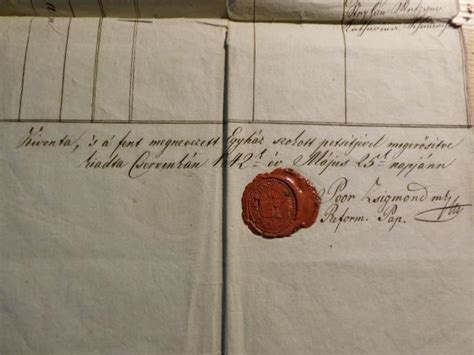 Kivonta, is a fent megnevezett Egyház szokott petsétjével megerősitve
kiadta Cservenkán 1842k év Május 25k napjánn
Poor Zsigmond mk
Reform. Pap.